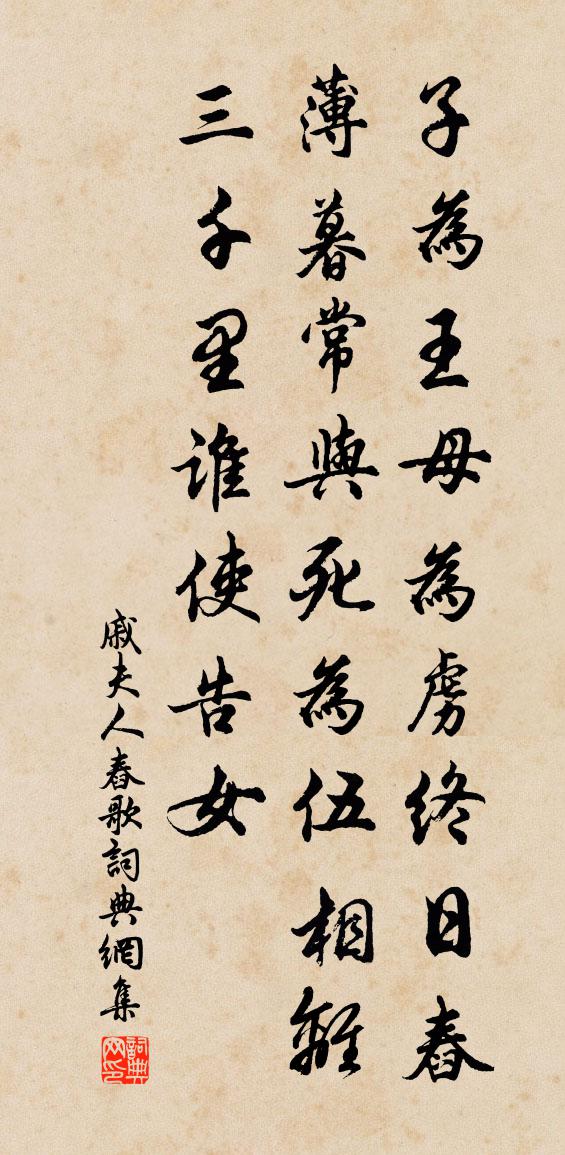 子為王母為虜終日舂
薄暮常與死為伍相離
三千里誰使告女
戚夫人舂歌詞典網集
詞典网印